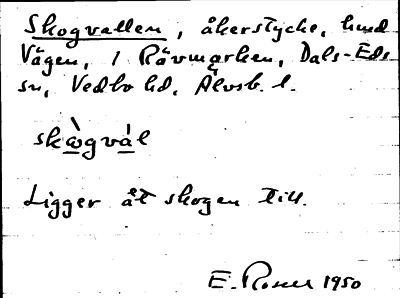 Skogvallen, åkerstycke, hmd
Vägen, 1 Rävmarken, Dals-Eds
sn, Vedbo hd, Älvsb. l.
skὼgvál
Ligger åt skogen till.
E. Rosell 1950